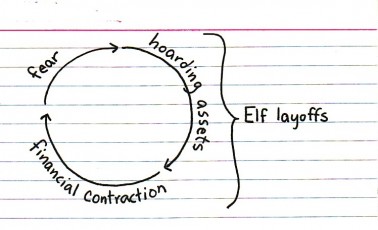 fear
hoarding assets
financial contraction
Elf layoffs